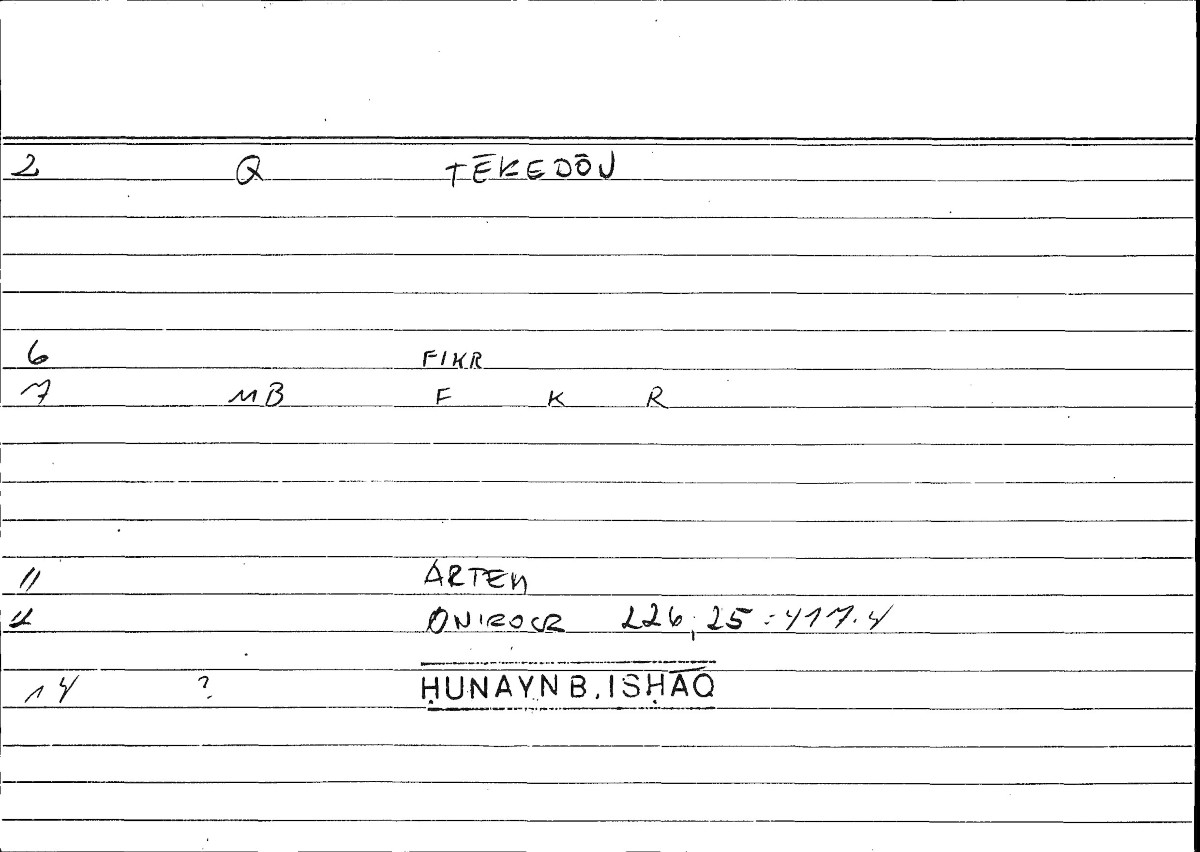 2 Q TĒKEDŌN
6 FIKR
7 MB F K R
11 ARTEM
12 ONIROCR 226,25 : 417.4
14 ? ḤUNAYN B. ISḤĀQ